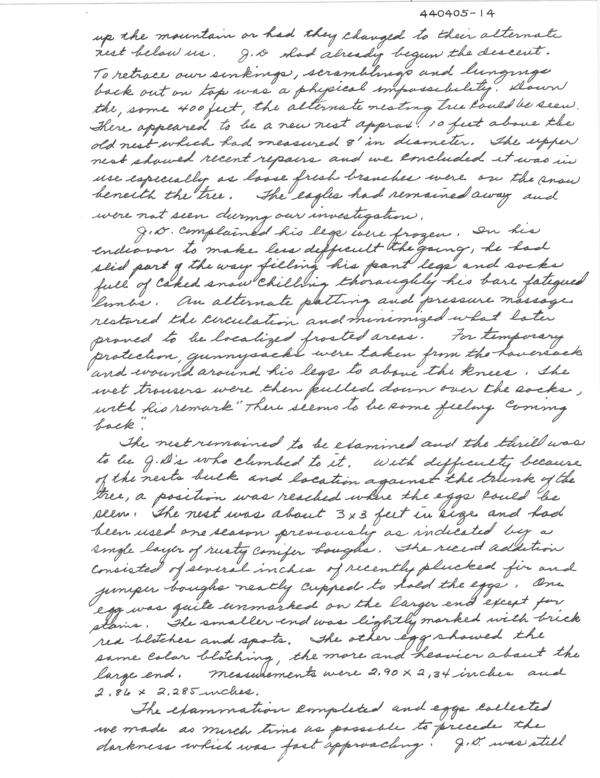 440405-14
up the mountain or had they changed to their alternate
nest below us. J.D had already begun the descent.
To retrace our sinkings, scramblings and lungings
back out on top was a physical impossibility. Down
the, some 400 feet, the alternate nesting tree could be seen.
There appeared to be a new nest approx. 10 feet above the
old nest which had measured 8' in diameter. The upper
nest showed recent repairs and we concluded it was in
use especially as loose fresh branches were on the snow
beneith the tree. The eagles had remained away and
were not seen during our investigation.
J.D. complained his legs were frozen. In his
endeavor to make less difficult the going, he had
slid part of the way filling his pant legs and socks
full of caked snow chilling thoroughly his bare fatigued
limbs. An alternate patting and pressure massage
restored the circulation and minimized what later
proved to be localized frosted areas. For temporary
protection, gunnysacks were taken from the haversack
and wound around his legs to above the knees. The
wet trousers were then pulled down over the socks,
with his remark "There seems to be some feeling coming
back".
The nest remained to be examined and the thrill was
to be J.D's who climbed to it. With difficulty because
of the nests bulk and location against the trunk of the
tree, a position was reached where the eggs could be
seen. The nest was about 3x3 feet in size and had
been used one season previously as indicated by a
single layer of rusty conifer boughs. The recent addition
consisted of several inches of recently plucked fir and
juniper boughs neatly cupped to hold the eggs. One
egg was quite unmarked on the larger end except for
stains. The smaller end was lightly marked with brick
red blotches and spots. The other egg showed the
same color blotching, the more and heavier about the
large end. Measurements were 2.90 x 2.34 inches and
2.86 x 2.285 inches.
The examination completed and eggs collected
we made as much time as possible to precede the
darkness which was fast approaching. J.D. was still